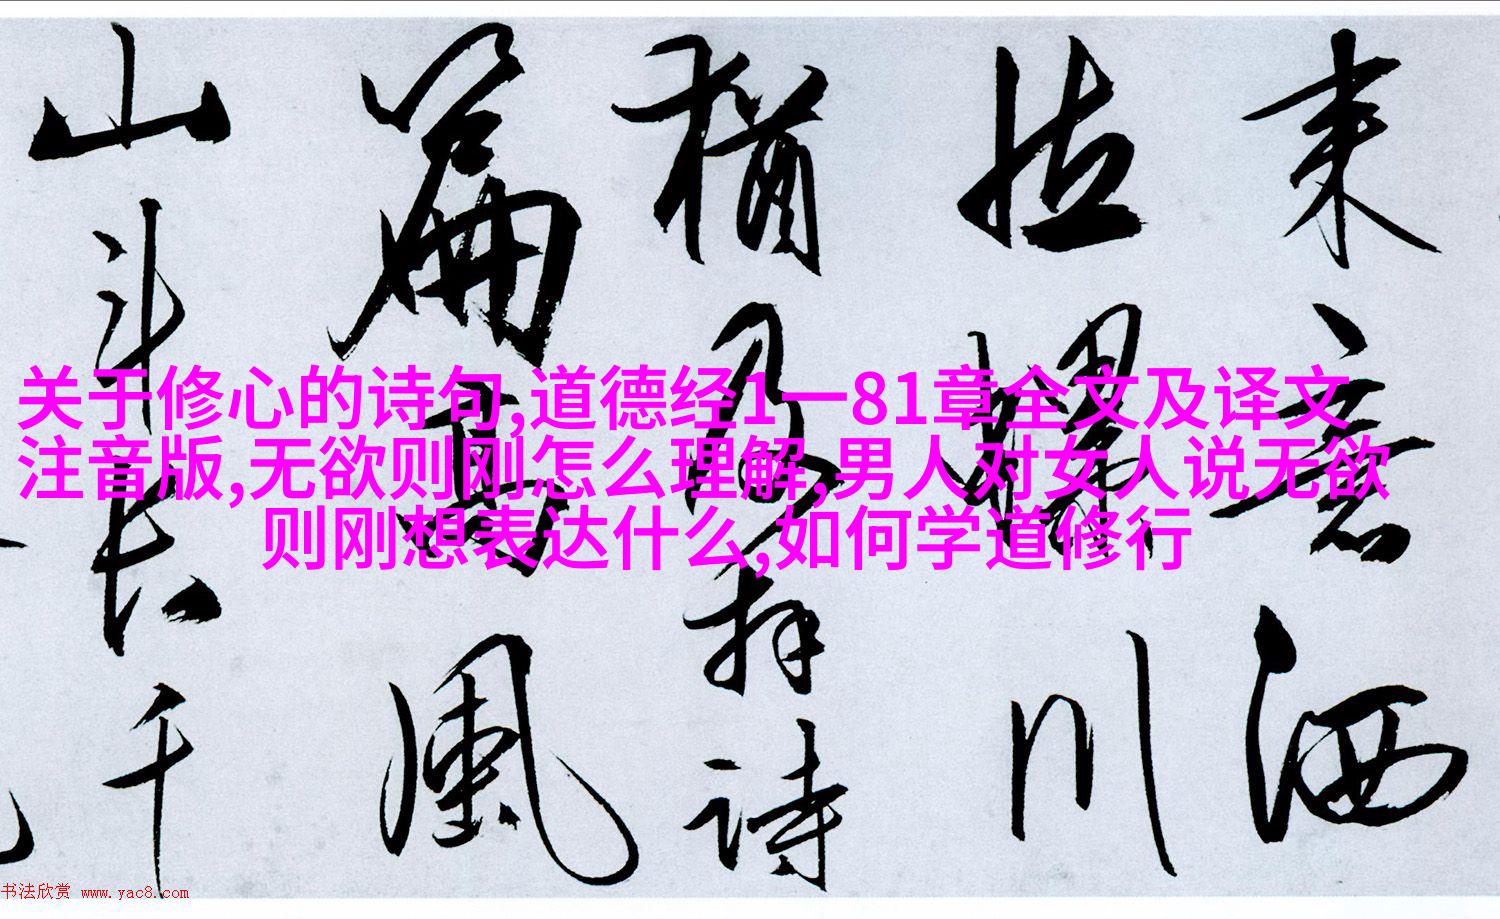 关于修心的诗句,道德经1一81章全文及译文
注音版,无欲则刚怎么理解,男人对女人说无欲
则刚想表达什么,如何学道修行
来意洒
川
及拜詩
篇高風
山斗长千
书法欣赏 www.yac8.com